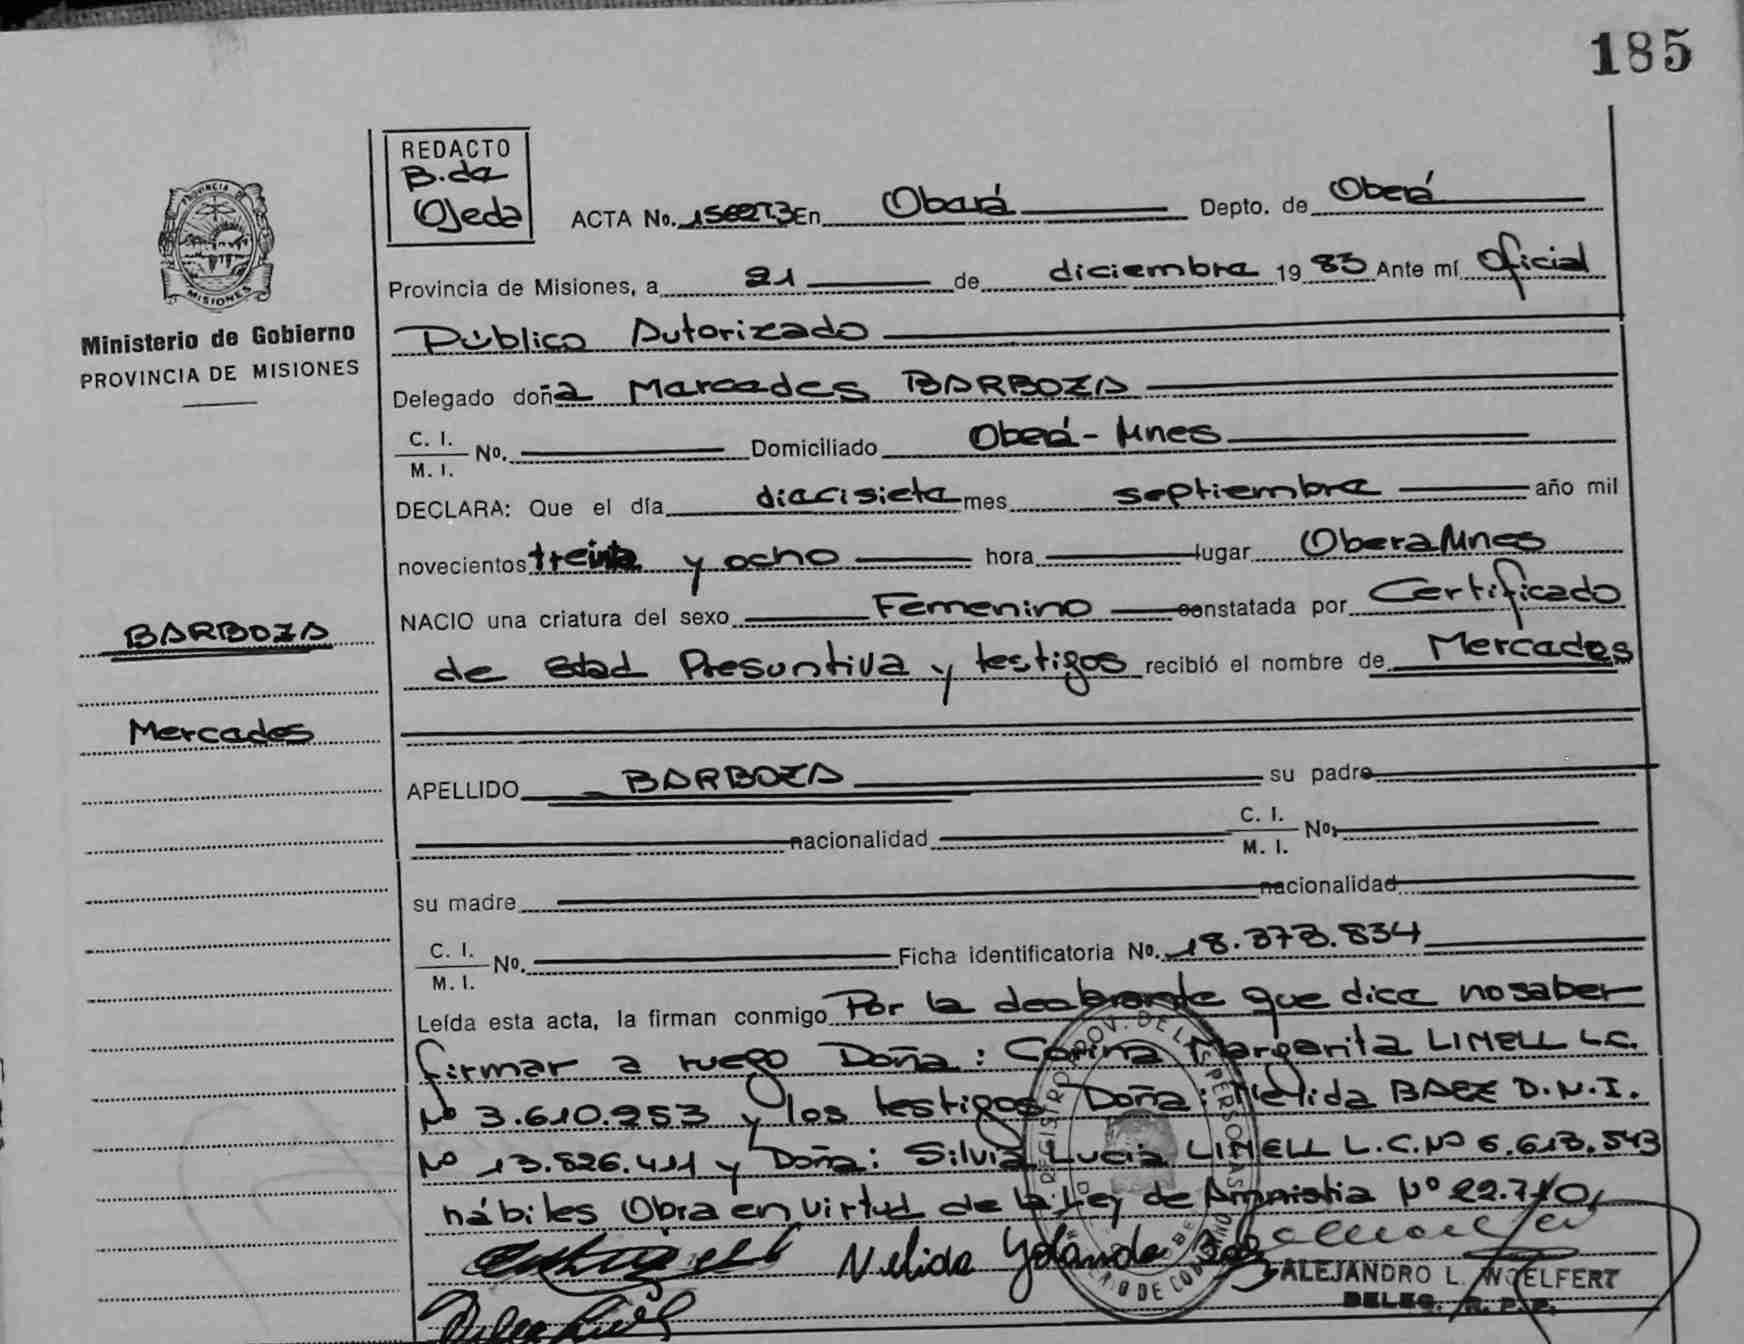 185
REDACTO
B. de
Ojeda
ACTA No. En Oberá Depto. de Oberá
PROVINCIA DE
MISIONES
Provincia de Misiones, a 21 de diciembre 19 83 Ante mí Oficial
Ministerio de Gobierno
PROVINCIA DE MISIONES
Público Autorizado
Delegado doña Mercedes BARBOZA
C. I.
M. I. No. Domiciliado Oberá - Mnes
DECLARA: Que el día diecisiete mes septiembre año mil
novecientos treinta y ocho hora lugar Obera Mnes
NACIO una criatura del sexo Femenino constatada por Certificado
BARBOZA
de Edad Presuntiva y testigos recibió el nombre de Mercedes
Mercedes
APELLIDO BARBOZA su padre
nacionalidad C. I.
M. I. No.
su madre nacionalidad
C. I.
M. I. No. Ficha identificatoria No. 18.373.834
Leída esta acta, la firman conmigo Por la declarante que dice no saber
firmar a ruego Doña: Corina Margarita LINELL L.C.
Nº 3.610.253 y los testigos Doña: Nélida BAEZ D.N.I.
Nº 13.826.411 y Doña: Silvia Lucia LINELL L.C. Nº 6.613.543
hábiles Obra en virtud de la Ley de Amnistia Nº 22.710,
Nelida Yolanda
ALEJANDRO L. WOELFERT
DELEG. R. P. P.